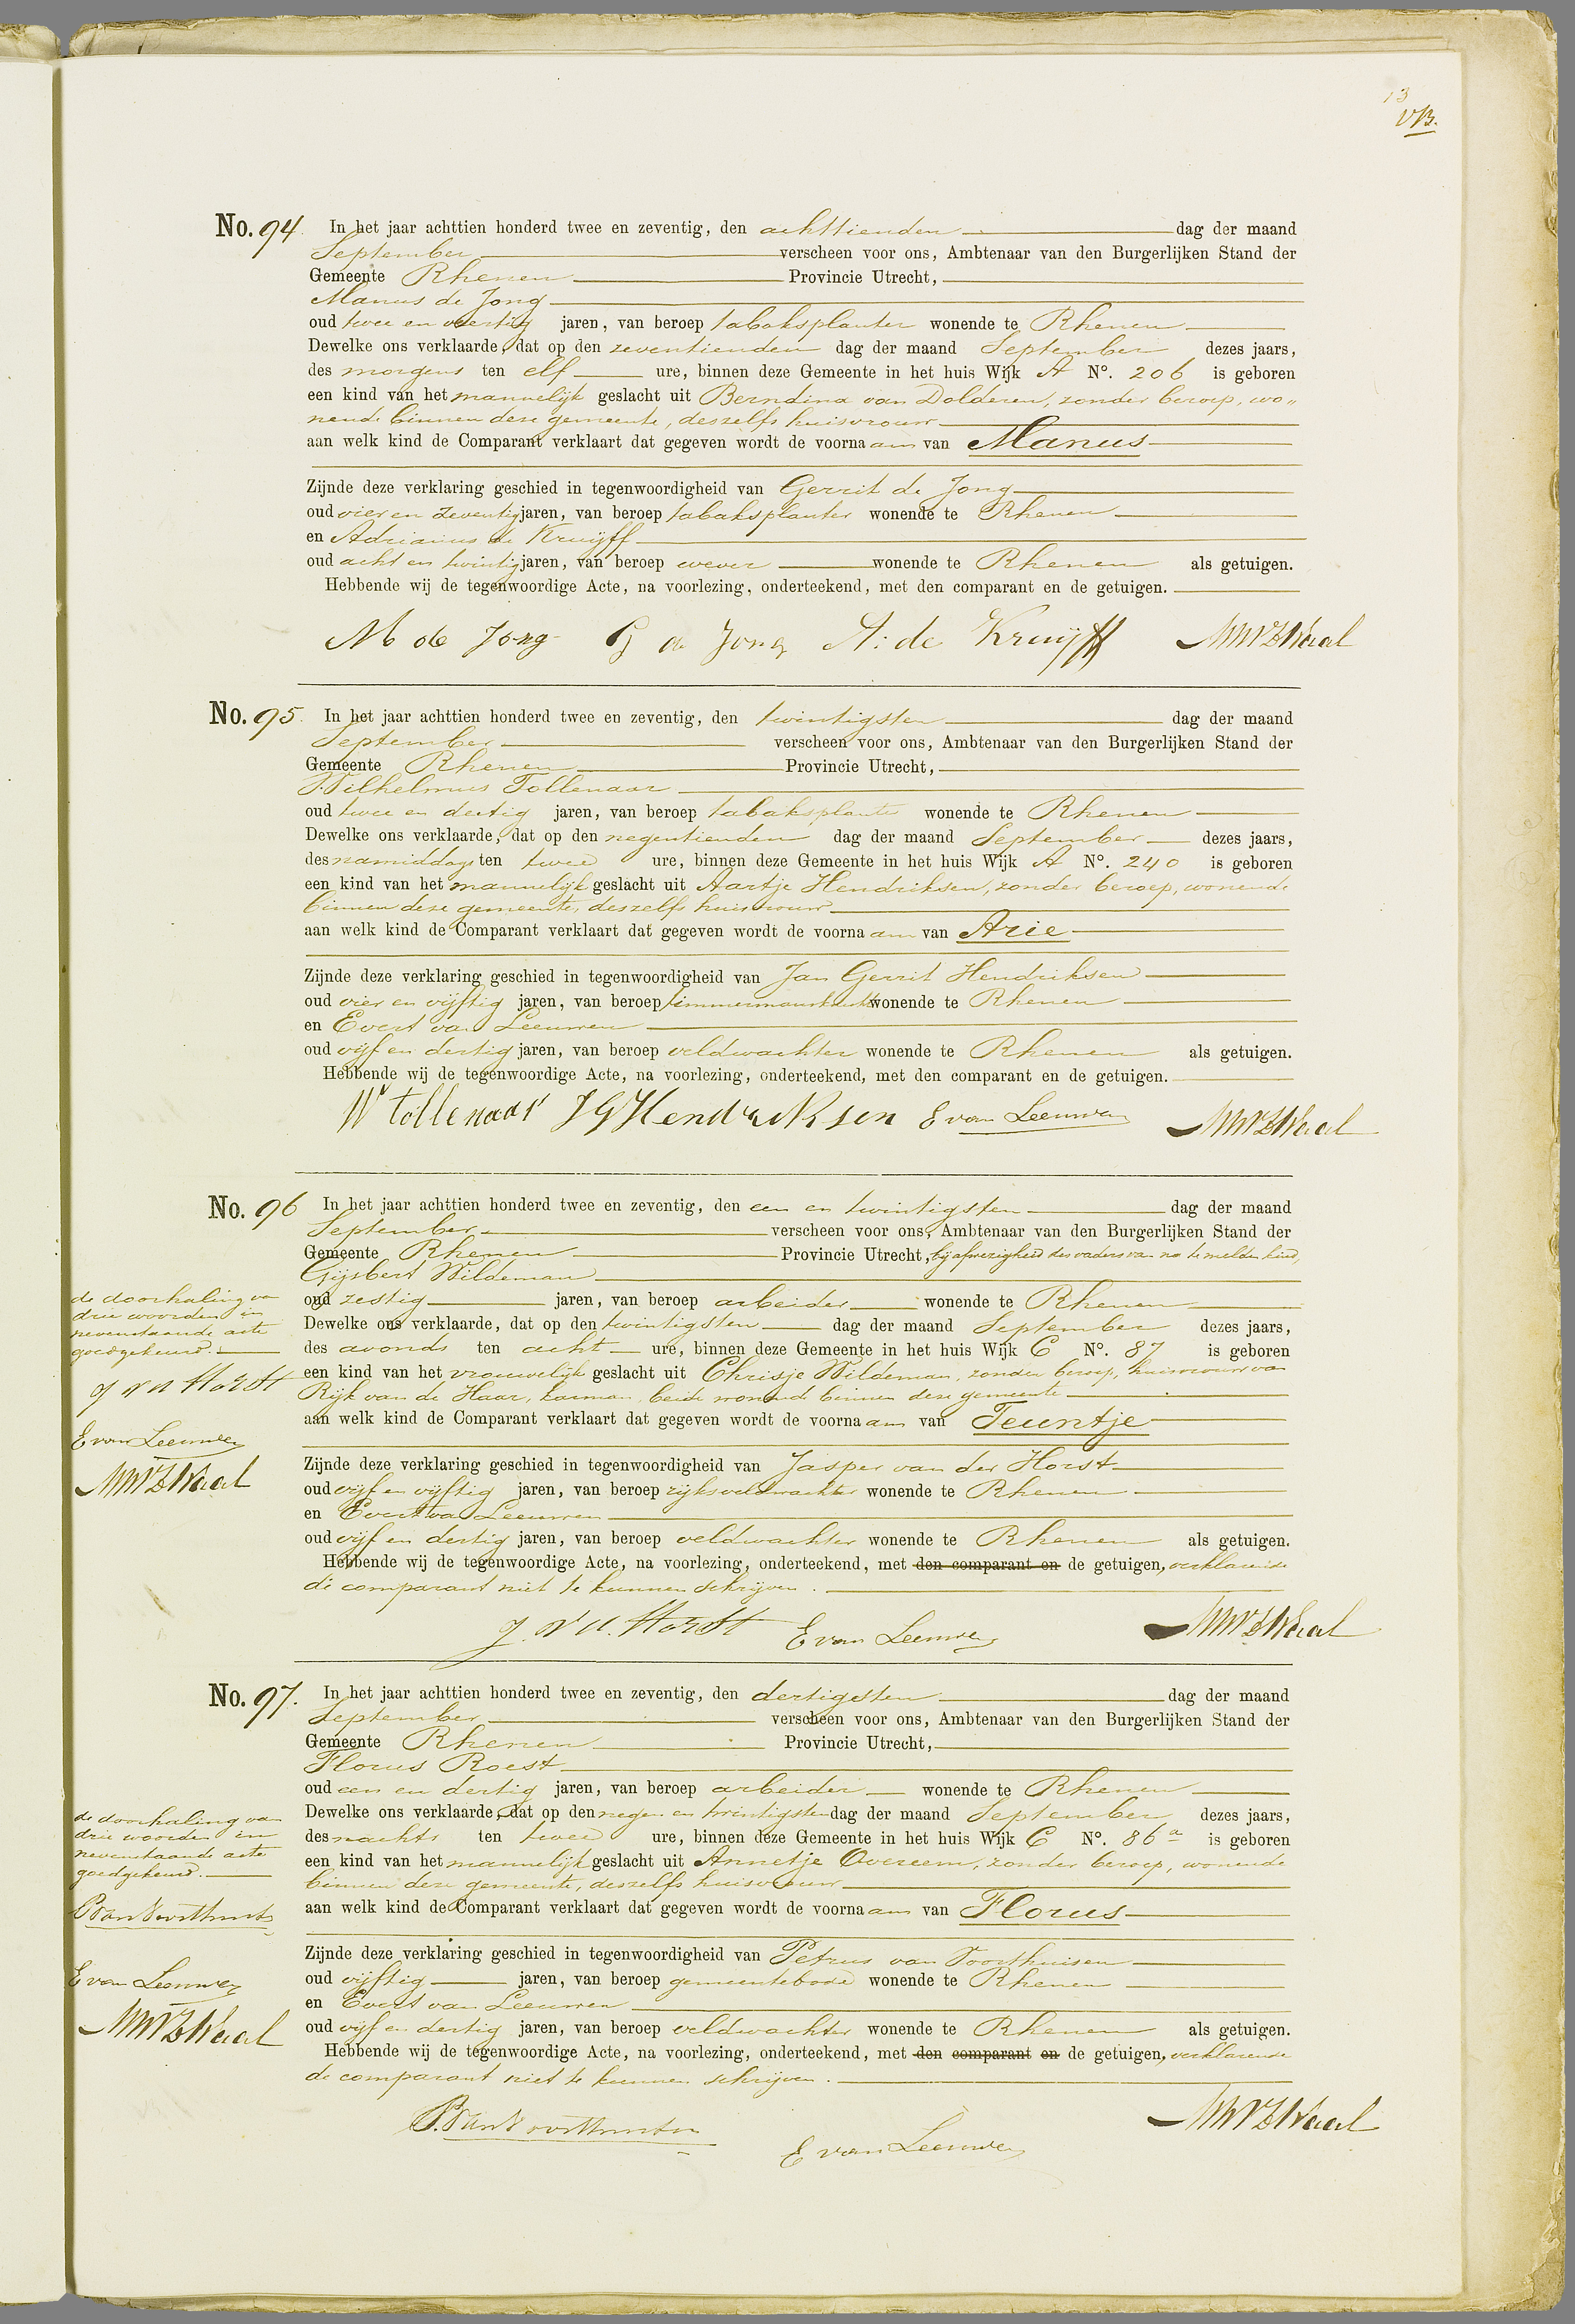 13
No. 94. In het jaar achttien honderd twee en zeventig, den achttienden dag der maand
September verscheen voor ons, Ambtenaar van den Burgerlijken Stand der
Gemeente Rhenen Provincie Utrecht,
Manus de Jong
oud twee en veertig jaren, van beroep tabaksplanter wonende te Rhenen
Dewelke ons verklaarde, dat op den zeventienden dag der maand September dezes jaars,
des morgens ten elf ure, binnen deze Gemeente in het huis Wijk A No. 206 is geboren
een kind van het mannelijk geslacht uit Berndina van Dolderen, zonder beroep, wo„
nende binnen deze gemeente, deszelfs huisvrouw
aan welk kind de Comparant verklaart dat gegeven wordt de voornaam van Manus
Zijnde deze verklaring geschied in tegenwoordigheid van Gerrit de Jong
oud vier en zeventig jaren, van beroep tabaksplanter wonende te Rhenen
en Adrianus de Kruijff
oud acht en twintig jaren, van beroep wever wonende te Rhenen als getuigen.
Hebbende wij de tegenwoordige Acte, na voorlezing, onderteekend, met den comparant en de getuigen.
M de Jong G de Jong A: de Kruijff
No. 95. In het jaar achttien honderd twee en zeventig, den twintigsten dag der maand
September verscheen voor ons, Ambtenaar van den Burgerlijken Stand der
Gemeente Rhenen Provincie Utrecht,
Wilhelmus Tollenaar
oud twee en dertig jaren, van beroep tabaksplanter wonende te Rhenen
Dewelke ons verklaarde, dat op den negentienden dag der maand September dezes jaars,
des namiddags ten twee ure, binnen deze Gemeente in het huis Wijk A No. 240 is geboren
een kind van het mannelijk geslacht uit Aartje Hendriksen, zonder beroep, wonende
binnen deze gemeente, deszelfs huisvrouw
aan welk kind de Comparant verklaart dat gegeven wordt de voornaam van Arie
Zijnde deze verklaring geschied in tegenwoordigheid van Jan Gerrit Hendriksen
oud vier en vijftig jaren, van beroep timmermansknecht wonende te Rhenen
en Evert van Leeuwen
oud vijf en dertig jaren, van beroep veldwachter wonende te Rhenen als getuigen.
Hebbende wij de tegenwoordige Acte, na voorlezing, onderteekend, met den comparant en de getuigen.
W tollenaar J G Hendriksen E van Leeuwen
No. 96 In het jaar achttien honderd twee en zeventig, den een en twintigsten dag der maand
September verscheen voor ons, Ambtenaar van den Burgerlijken Stand der
Gemeente Rhenen Provincie Utrecht, bij afwezigheid des vaders van na te melden kind,
Gijsbert Wildeman
oud zestig jaren, van beroep arbeider wonende te Rhenen
Dewelke ons verklaarde, dat op den twintigsten dag der maand September dezes jaars,
des avonds ten acht ure, binnen deze Gemeente in het huis Wijk C No. 87 is geboren
een kind van het vrouwelijk geslacht uit Chrisje Wildeman, zonder beroep, huisvrouw van
Rijk van de Haar, karman, beide wonend binnen deze gemeente
aan welk kind de Comparant verklaart dat gegeven wordt de voornaam van Teuntje
Zijnde deze verklaring geschied in tegenwoordigheid van Jasper van der Horst
oud vijf en vijftig jaren, van beroep rijksveldwachter wonende te Rhenen
en Evert van Leeuwen
oud vijf en dertig jaren, van beroep veldwachter wonende te Rhenen als getuigen.
Hebbende wij de tegenwoordige Acte, na voorlezing, onderteekend, met den comparant en de getuigen, verklarende
de comparant niet te kunnen schrijven.
J. v d. Horst E van Leeuwen
de doorhaling van
drie woorden in
nevenstaande acte
goedgekeurd.
J v d Horst
E van Leeuwen
No. 97. In het jaar achttien honderd twee en zeventig, den dertigsten dag der maand
September verscheen voor ons, Ambtenaar van den Burgerlijken Stand der
Gemeente Rhenen Provincie Utrecht,
Florus Roest
oud een en dertig jaren, van beroep arbeider wonende te Rhenen
Dewelke ons verklaarde, dat op den negen en twintigsten dag der maand September dezes jaars,
des nachts ten twee ure, binnen deze Gemeente in het huis Wijk C No. 86a is geboren
een kind van het mannelijk geslacht uit Annetje Overeem, zonder beroep, wonende
binnen deze gemeente, deszelfs huisvrouw
aan welk kind de Comparant verklaart dat gegeven wordt de voornaam van Florus
Zijnde deze verklaring geschied in tegenwoordigheid van Petrus van Voorthuisen
oud vijftig jaren, van beroep gemeentebode wonende te Rhenen
en Evert van Leeuwen
oud vijf en dertig jaren, van beroep veldwachter wonende te Rhenen als getuigen.
Hebbende wij de tegenwoordige Acte, na voorlezing, onderteekend, met den comparant en de getuigen, verklarende
de comparant niet te kunnen schrijven.
E van Leeuwen
de doorhaling van
drie woorden in
nevenstaande acte
goedgekeurd.
E van Leeuwen